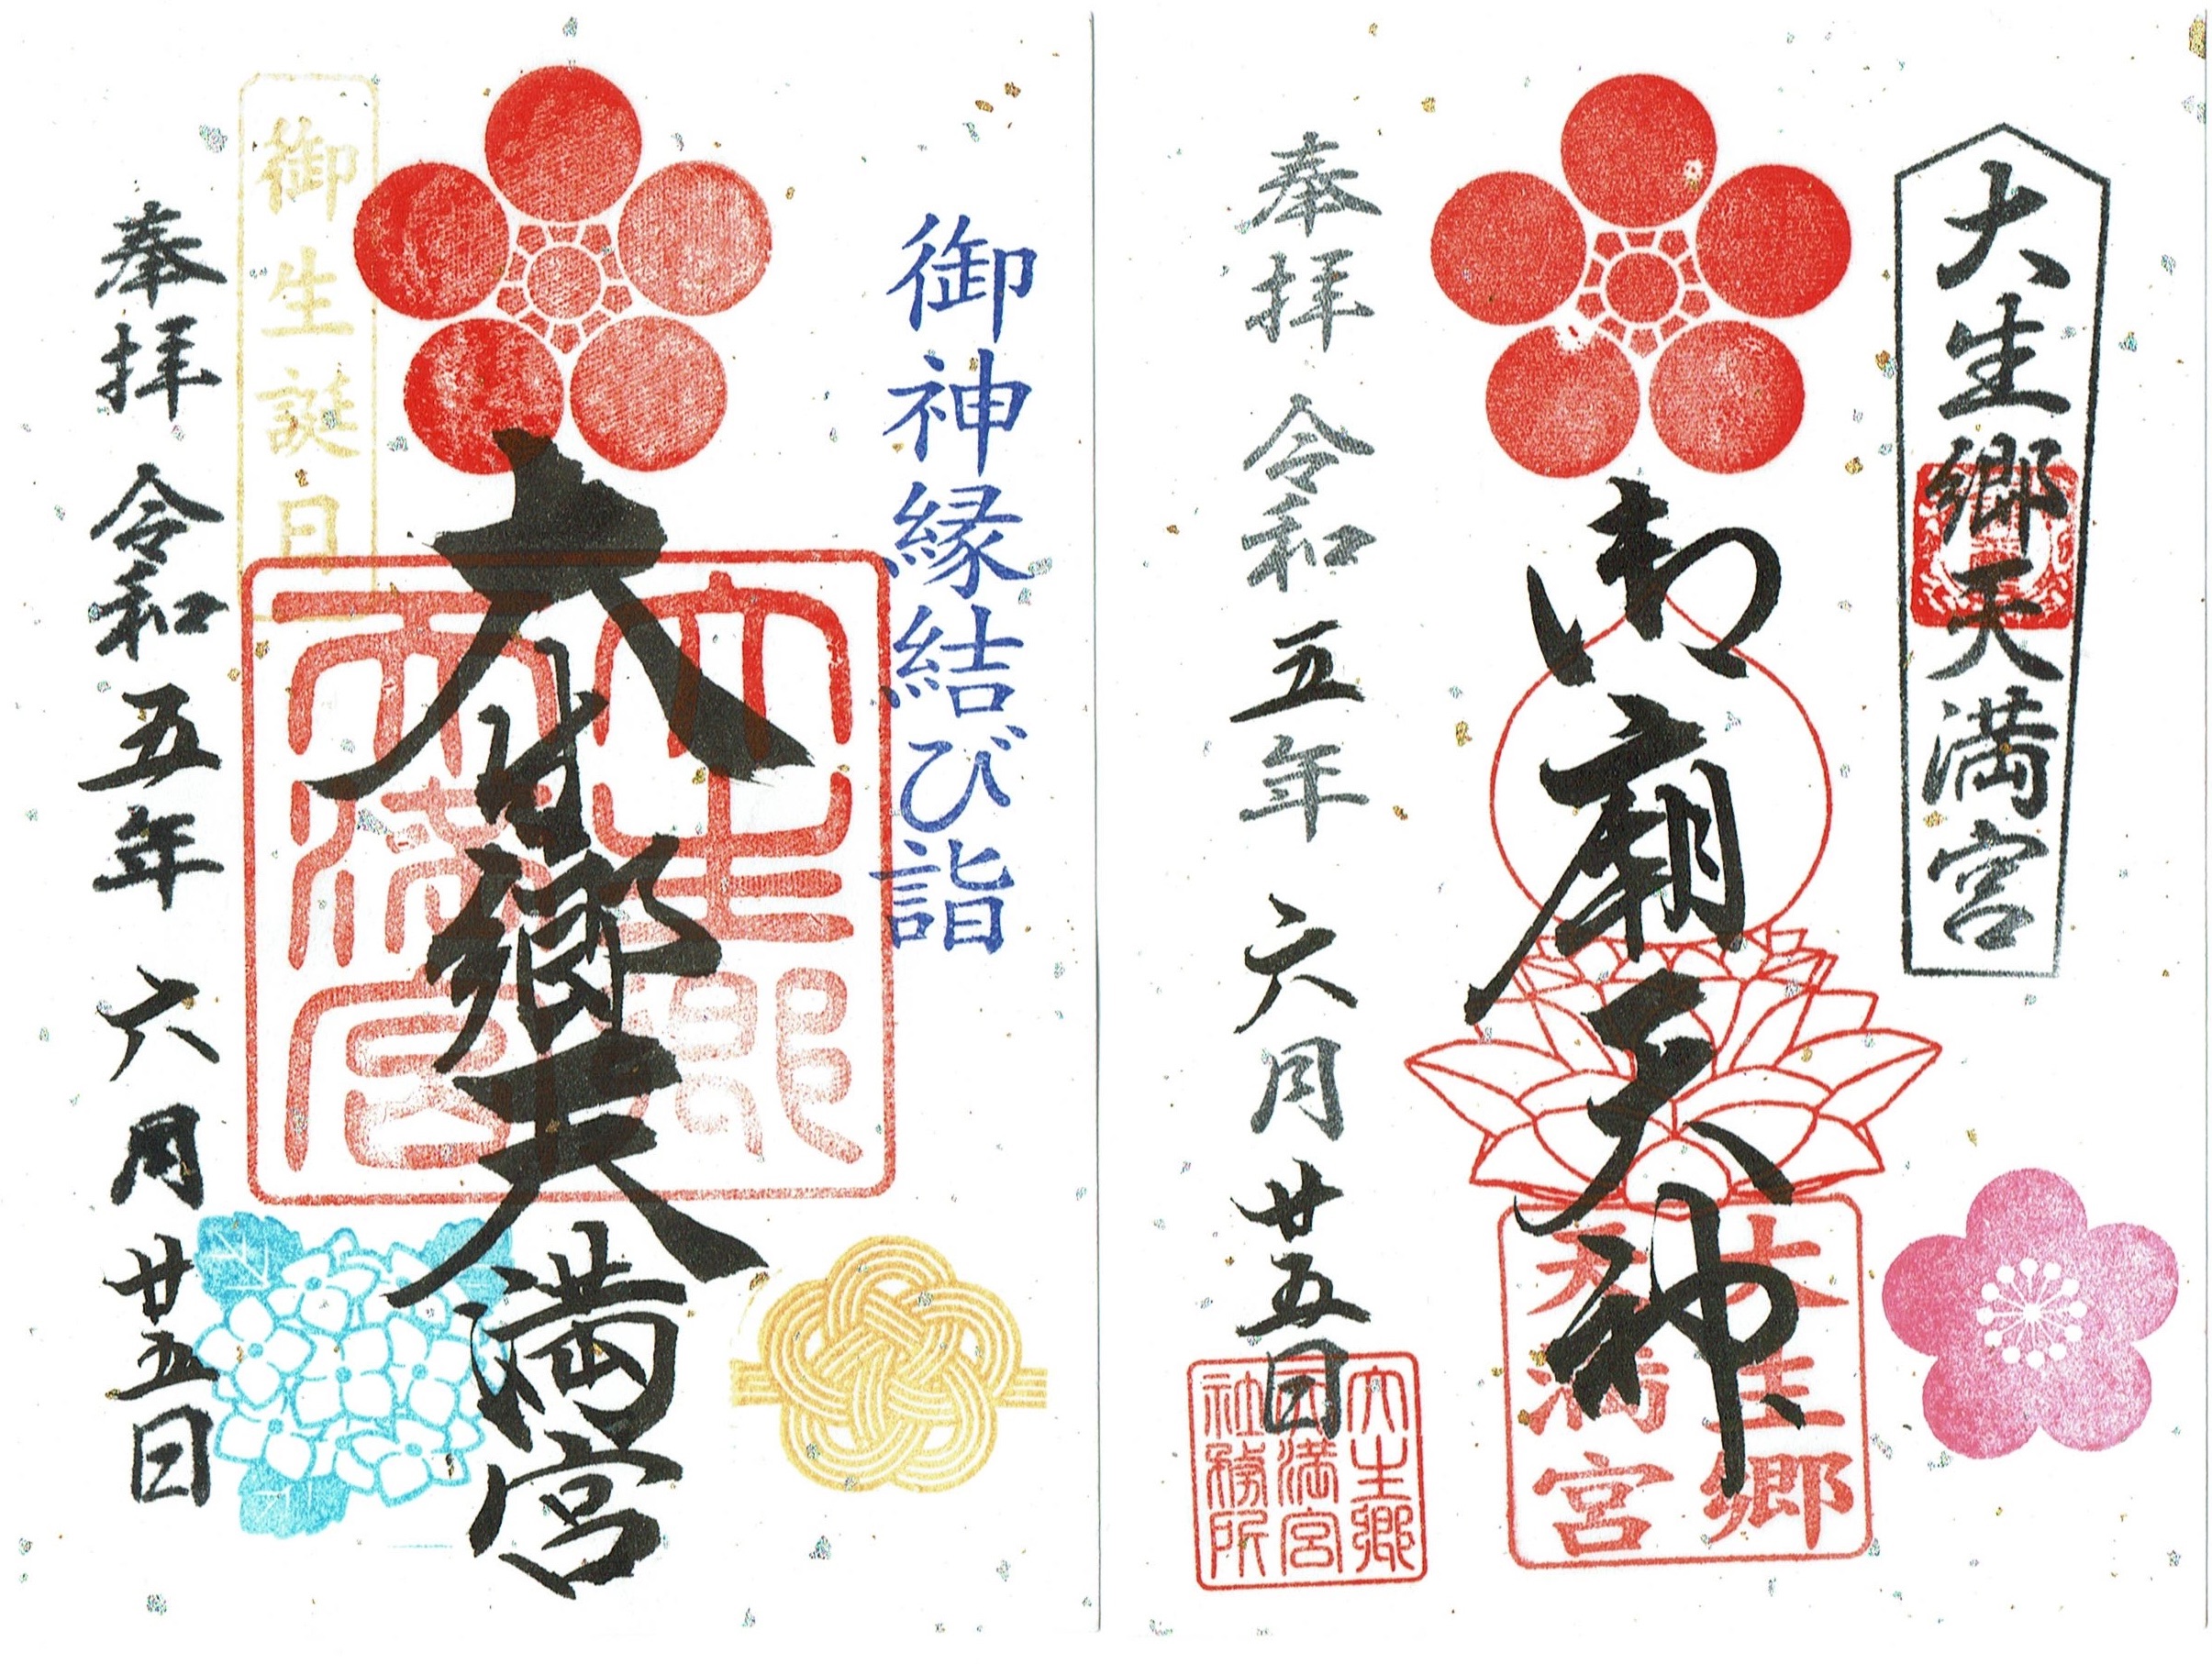 大生郷天満宮
御廟天神
大生郷
天満宮
奉拝 令和五年 六月 廿五日
大生郷
天満宮
社務所
御神縁結び詣
大生郷天満宮
大生郷
天満宮
御生誕日
奉拝 令和五年 六月 廿五日